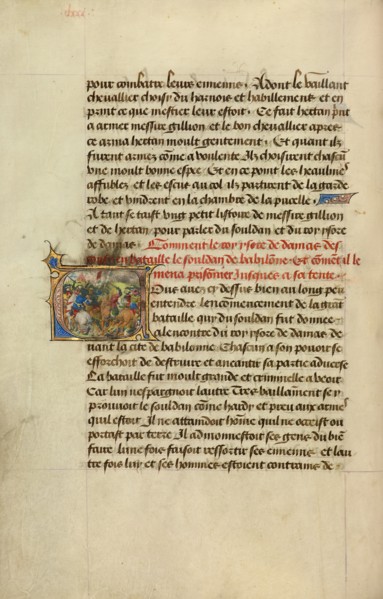 pour combatre leurs ennemis. Adont le vaillant
chevallier choisy du harnois et habillemens et en
print ce que mestier leur estoit. Ce fait hertan print
a armer messire gillion et le bon chevallier apres
ce arma hertan moult gentement. Et quant ilz
furent armez come a voulente Ilz choisirent chascun
une moult bonne espee Et en ce point les heaulmes
affublez et les escus au col ilz partirent de la garde
robe et vindrent en la chambre de la pucelle.
A tant se taist ung petit listoire de messire gillion
et de hertan pour parler du souldan et du roy ysore
de damas. Comment le roy ysore de damas des
en bataille le souldan de babilone. Et coment il le
mena prisonnier Jusques a sa tente.
Ous avez cy dessus bien au long peu
entendre lencommencement de la grant
bataille quy du souldan fut donnee
alencontre du roy ysore de damas de
vant la cite de babilonne Chascun a son povoir se
efforchoit de destruire et aneantir sa partie adverse
La bataille fut moult grande et criminelle a veoir
Car lun nespargnoit lautre Tres vaillament se y
prouvoit le souldan come hardy et preu aux armes
quil estoit Il nattaindoit home quil ne occeist ou
portast par terre Il admonnestoit ses gens du bien
faire lune fois faisoit ressortir ses ennemis et lau
tre fois luy et ses hommes estoient contrains de